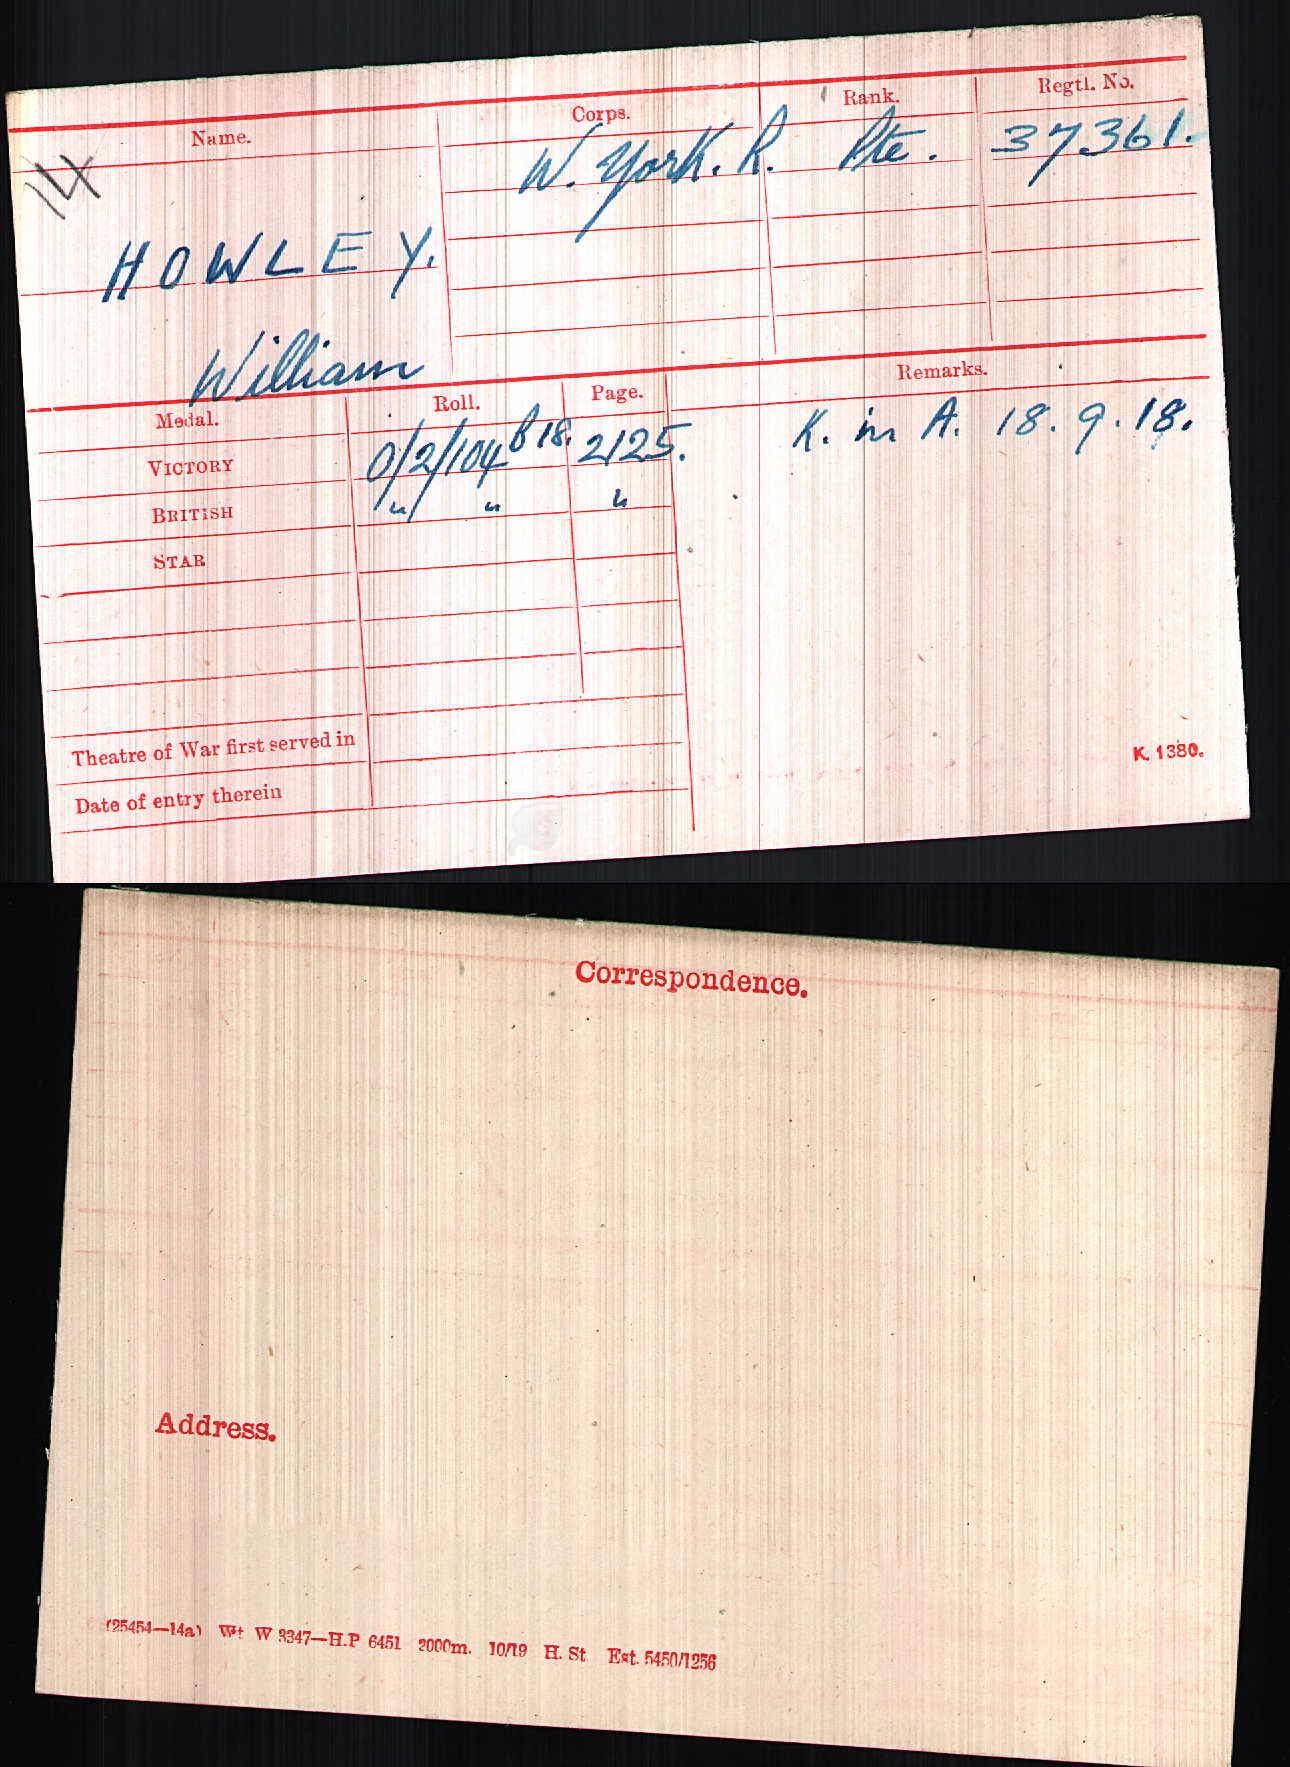 Name. Corps. Rank. Regtl. No.
14
W. York. R. Pte. 37361.
HOWLEY.
William
Medal. Roll. Page. Remarks.
VICTORY 0/2/104 B18. 2125. K. in A. 18.9.18.
BRITISH " " "
STAR
Theatre of War first served in
Date of entry therein
K. 1380.
Correspondence.
Address.
(25454—14a) Wt W 3347—H.P 6451 2000m. 10/19 H. St Est. 5450/1256